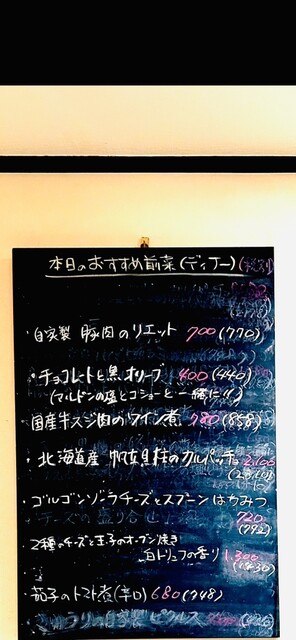 本日のおすすめ前菜(ディナー)(税別)
・自家製 豚肉のリエット 700(770)
・チョコレートと黒オリーブ 400(440)
(マルドンの塩とコショーと一緒に!!)
国産牛スジ肉のワイン煮 780(858)
・北海道産 帆立貝柱のカルパッチョ 2,100
(2310)
・ゴルゴンゾーラチーズとスプーン はちみつ
720
(792)
・2種のチーズと玉子のオーブン焼き
白トリュフの香り 1,300
(1430)
・茄子のトマト煮(辛口)680(748)
自家製 ピクルス